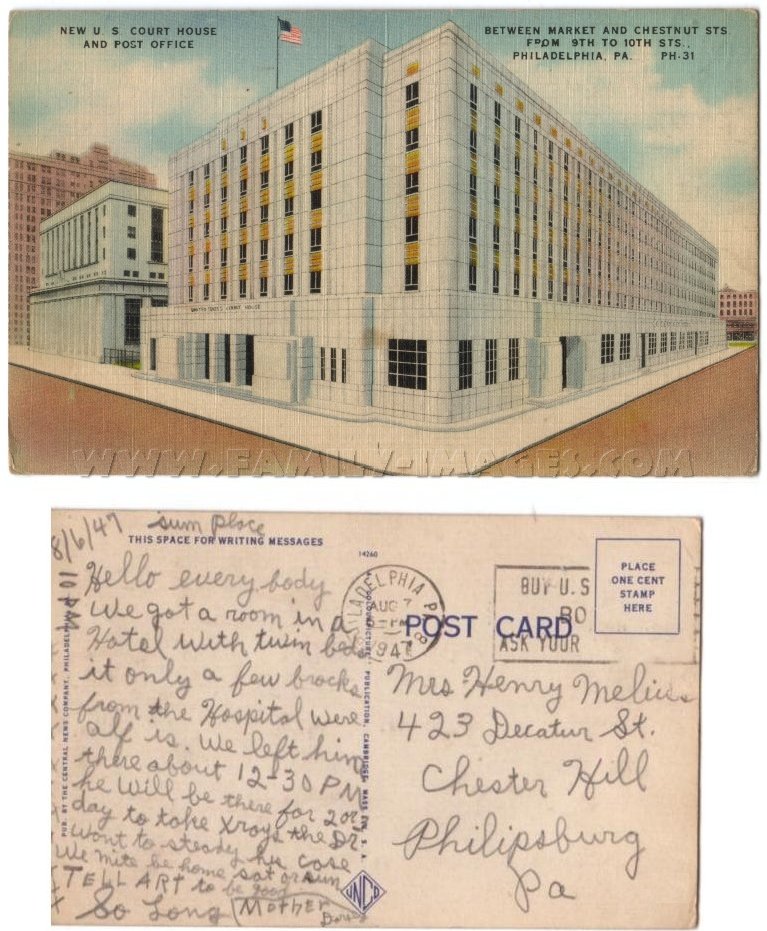 NEW U. S. COURT HOUSE
AND POST OFFICE
BETWEEN MARKET AND CHESTNUT STS
FROM 9TH TO 10TH STS.,
PHILADELPHIA, PA. PH-31
UNITED STATES COURT HOUSE
WWW.FAMILY-IMAGES.COM
8/6/47
10 PM
sum place
THIS SPACE FOR WRITING MESSAGES
Hello every body
We got a room in a
Hotel With twin beds
it only a few brocks
from the Hospital were
alf is. We left him
there about 12-30 PM
he Will be there for 2 or 3
day to take Xrays the Dr.
Wont to steady his case
We mite be home sat or sun
TELL ART to be good
So Long Mother
PUB. BY THE CENTRAL NEWS COMPANY, PHILADELPHIA
14260
PUBLICATION, CAMBRIDGE, MASS., U. S. A.
PHILADELPHIA PA
AUG 7
1947
BUY U.S
BO
ASK YOUR
PLACE
ONE CENT
STAMP
HERE
POST CARD
Mrs Henry Melius
423 Decatur St.
Chester Hill
Philipsburg
Pa
UNCO